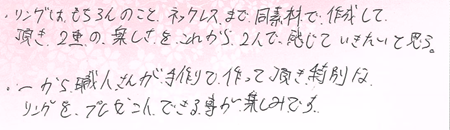 ・リングは、もちろんのこと、ネックレスまで、同素材で、作成して
頂き、2重の、楽しさを、これから、2人で、感じていきたいと思う。
・一から、職人さんが、手作りで、作って頂き、特別な
リングを、プレゼントできる事が、楽しみです。